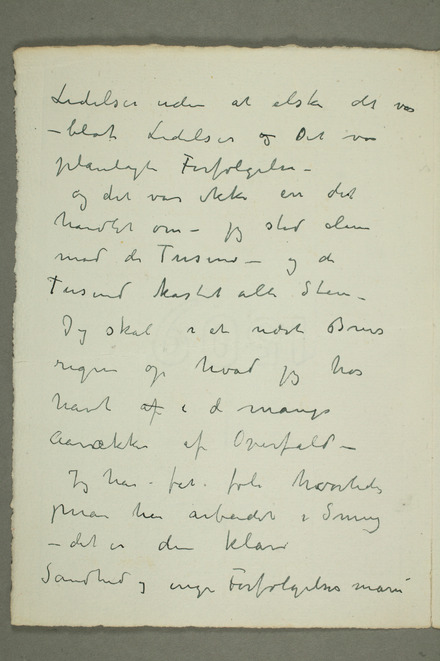 Lidelser uden at elske det var
– blot Lidelser og Det var
planlagte Forfølgelse –
og det var ikke en det
handlet om – jeg stod alene
mod de Tusind – og de
Tusind kastet alle Sten –
Jeg skal i et næste Brev
regne op hvad jeg har
havt af i de mange
Aarrække af Overfald –
Jeg har fåt føle hvorledes
man har arbeidet i Smug
– det er den klare
Sandhed og ingen Forfølgelses mani